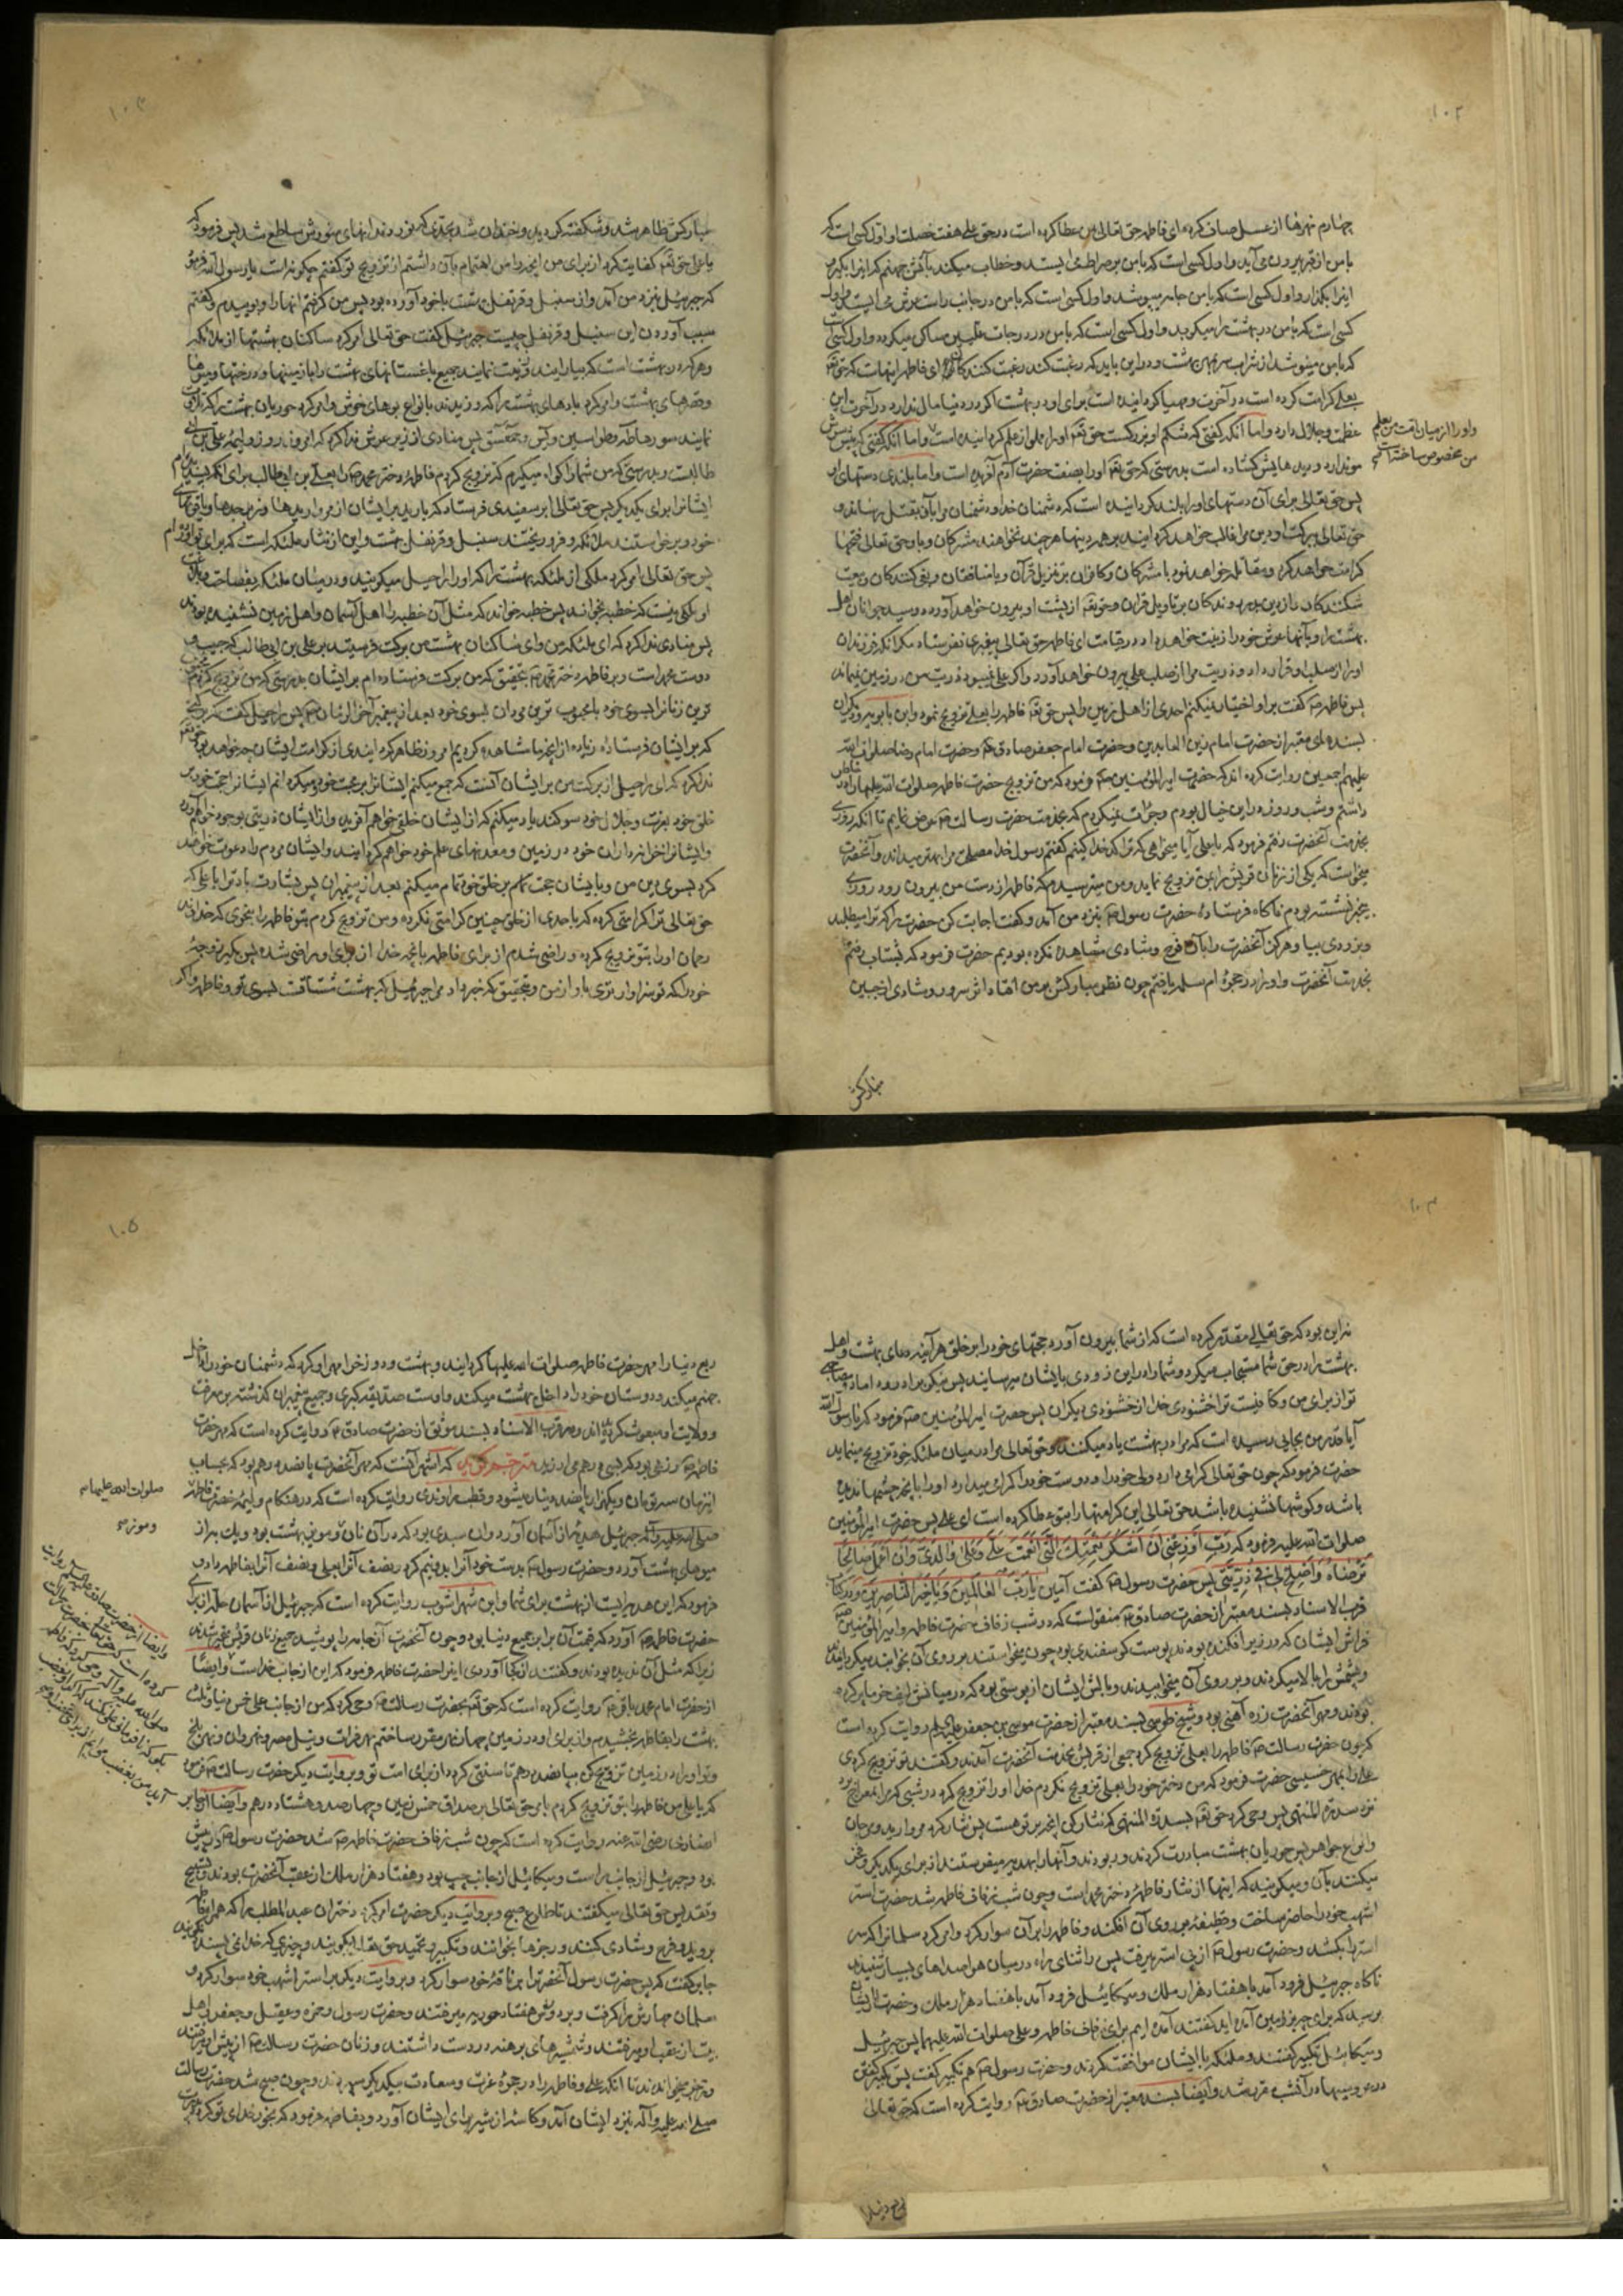 ۱۰۲
چهارم نهرها از عسل صاف کرده ای فاطمه حق تعالی بمن عطا کرده است در حق علی هفت خصلت او اول کسی است که
با من از قبر بیرون می آید و اول کسی است که با من بر صراط می ایستد و خطاب میکند بآتش جهنم که این را بگیر و
این را بگذار و اول کسی است که با من جامه میپوشد و اول کسی است که با من در جانب راست عرش می ایستد و اول
کسی است که با من در بهشت را میکوبد و اول کسی است که با من در درجات علیین ساکن میگردد و اول کسی است
که با من مینوشد از شراب سر بمهر بهشت و در این باید که رغبت کنند رغبت کنندکان ای فاطمه اینهاست که حق تعـ
بعلی کرامت کرده است در آخرت و مهیا کردانیده است برای او در بهشت اکر در دنیا مال ندارد در آخرت این
عظمت و جلال دارد و اما آنکه کفتی که شکم او بزرکست حق تعـ او را مملو از علم کردانیده است و اما آنکه کفتی که پیش سرش
مو ندارد و دیدهایش کشاده است بدرستی که حق تعـ او را بصفت حضرت آدم آفریده است و اما بلندی دستهای او
پس حق تعالی برای آن دستهای او را بلند کردانیده است که دشمنان خدا و دشمنان مرا بآن بقتل رساند و
حق تعالی ببرکت او دین مرا غالب خواهد کردانید بر همه دینها هر چند نخواهند مشرکان و باو حق تعالی فتحها
کرامت خواهد کرد و مقاتله خواهد نمود با مشرکان و کافران بر تنزیل قرآن و با منافقان و بغی کنندکان و بیعت
شکنندکان و از دین بدر روندکان بر تاویل قرآن و حق تعـ از پشت او بیرون خواهد آورد دو سید جوانان اهل
بهشت را و بآنها عرش خود را زینت خواهد داد در قیامت ای فاطمه حق تعالی پیغمبری نفرستاد مکر آنکه فرزندان
او را از صلب او قرار داد و ذریت مرا از صلب علی بیرون خواهد آورد و اکر علی نمیبود ذریت من در زمین نمیماند
پس فاطمه ع کفت بر او اختیار نمیکنم احدی از اهل زمین را پس حق تعـ فاطمه را بعلی تزویج نمود و ابن بابویه و دیکران
بسندهای معتبر از حضرت امام زین العابدین و حضرت امام جعفر صادق ع و حضرت امام رضا صلوات الله
علیهم اجمعین روایت کرده اند که حضرت امیر المؤمنین ع فرمود که من تزویج حضرت فاطمه صلوات الله علیها را در خاطر
داشتم و شب و روز در این خیال بودم و جرأت نمیکردم که بخدمت حضرت رسالت ص عرض نمایم تا آنکه روزی
بخدمت آنحضرت رفتم فرمود که یا علی آیا میخواهی که ترا کدخدا کنیم کفتم رسول خدا مصلحت مرا بهتر میداند و آنحضرت
میخواست که یکی از زنان قریش را بمن تزویج نماید و من میترسیدم که فاطمه از دست من بیرون رود روزی
بیخبر نشسته بودم ناکاه فرستادهٔ حضرت رسول ص بنزد من آمد و کفت اجابت کن حضرت را که ترا میطلبد
و بزودی بیا و هرکز آنحضرت را بآن فرح و شادی مشاهده نکرده بودیم حضرت فرمود که بشتاب رفتم
بخدمت آنحضرت و او را در حجرهٔ ام سلمه یافتم چون نظر مبارکش بر من افتاد اثر سرور و شادی از جبین
واو را از میان امت من بعلم
من مخصوص ساخته است
مبارکش
۱۰۳
مبارکش ظاهر شد و شکفته کردید و خندان شد بحدی که نور دندانهای منورش ساطع شد پس فرمود که
یا علی حق تعـ کفایت کرد از برای من آنچه را من اهتمام بآن داشتم از تزویج تو کفتم چکونه است یا رسول الله فرمود
که جبرئیل بنزد من آمد و از سنبل و قرنفل بهشت با خود آورده بود پس من کرفتم آنها را و بوییدم و کفتم
سبب آوردن این سنبل و قرنفل چیست جبرئیل کفت حق تعالی امر کرد ساکنان بهشتها از ملائکه
و هر که در بهشت است که بیارایند و زینت نمایند جمیع باغستانهای بهشت را با زمینها و درختها و میوها
و قصرهای بهشت و امر کرد بادهای بهشت را که وزیدند بانواع بوهای خوش و امر کرد حوریان بهشت را که تلاوت
نمایند سورهٔ طه و طواسین و یس و حمعسق پس منادی از زیر عرش ندا کرد که امروز روز ولیمهٔ علی بن ابی
طالبست و بدرستی که من شما را کواه میکیرم که تزویج کردم فاطمه دختر محمد ص را بعلی بن ابی طالب برای آنکه پسندیدم
ایشانرا برای یکدیکر پس حق تعالی ابر سفیدی فرستاد که بارید بر ایشان از مرواریدها و زبرجدها و یاقوتهای
خود و برخواستند ملائکه و فرو ریختند سنبل و قرنفل بهشت و این از نثار ملئکه است که برای تو آورده ام
پس حق تعالی امر کرد ملکی از ملئکهٔ بهشت را که او را راحیل میکویند و در میان ملئکه بفصاحت و بلاغت
او ملکی نیست که خطبه بخواند پس خطبه خواند که مثل آن خطبه را اهل آسمان و اهل زمین نشنیده بودند
پس منادی ندا کرد که ای ملئکهٔ من و ای ساکنان بهشت من برکت فرستید بر علی بن ابی طالب که حبیب و
دوست محمد است و بر فاطمه دختر محمد ص بتحقیق که من برکت فرستاده ام بر ایشان بدرستی که من تزویج کردم محبوب
ترین زنانرا بسوی خود با محبوب ترین مردان بسوی خود بعد از پیغمبر آخر الزمان ص پس راحیل کفت چه برکت
که بر ایشان فرستادهٔ زیاده از آنچه ما مشاهده کردیم امروز و ظاهر کردانیدی از کرامت ایشان چه خواهد بود حق تعـ
ندا کرد که ای راحیل از برکت من بر ایشان آنست که جمع میکنم ایشانرا بر محبت خود و میکردانم ایشانرا حجت خود بر
خلق خود بعزت و جلال خود سوکند یاد میکنم که از ایشان خلقی خواهم آفرید و از ایشان ذریتی بوجود خواهم آورد
و ایشانرا خزانه داران خود در زمین و معدنهای علم خود خواهم کردانید و ایشان مردم را دعوت خواهند
کرد بسوی دین من و بایشان حجت تمام بر خلق خود تمام میکنم بعد از پیغمبران پس بشارت باد ترا یا علی که
حق تعالی ترا کرامتی کرده که باحدی از خلق چنین کرامتی نکرده و من تزویج کردم بتو فاطمه را بنحوی که خداوند
رحمان او را بتو تزویج کرده و راضی شدم از برای فاطمه بآنچه خدا از برای او راضی شده پس بکیر زوجهٔ
خود را که تو سزاوارتری باو از من و بتحقیق که خبر داد مرا جبرئیل که بهشت مشتاقست بسوی تو و فاطمه و اکر
۱۰۴
نه این بود که حق تعالی مقدر کرده است که از شما بیرون آورد حجتهای خود را بر خلق هر آینه دعای بهشت و اهل
بهشت را در حق شما مستجاب میکرد و شما را در این زودی بایشان میرسانید پس نیکو برادر و داماد و مصاحبی
تو از برای من و کافیست ترا خشنودی خدا از خشنودی دیکران پس حضرت امیر المؤمنین ع فرمود که یا رسول الله
آیا قدر من بجایی رسیده است که مرا در بهشت یاد میکنند و حق تعالی مرا در میان ملئکهٔ خود تزویج مینماید
حضرت فرمود که چون حق تعالی کرامی دارد ولی خود را و دوست خود را کرامی میدارد او را بآنچه چشمها ندیده
باشد و کوشها نشنیده باشد حق تعالی این کرامتها را بتو عطا کرده است ای علی پس حضرت امیر المؤمنین
صلوات الله علیه فرمود که رَبِّ اَوْزِعْنِی اَنْ اَشْکُرَ نِعْمَتَکَ الَّتِی اَنْعَمْتَ عَلَیَّ وَعَلی وَالِدَیَّ وَاَنْ اَعْمَلَ صَالِحًا
تَرْضَاهُ وَاَصْلِحْ لِی فِی ذُرِّیَّتِی پس حضرت رسول ص کفت آمین یا رَبَّ الْعَالَمِینَ وَیَا خَیْرَ النَّاصِرِینَ و در کتاب
قرب الاسناد بسند معتبر از حضرت صادق ع منقولست که در شب زفاف حضرت فاطمه و امیر المؤمنین ع
فراش ایشان که در زیر افکنده بودند پوست کوسفندی بود چون میخواستند بر روی آن بخوابند میکردانیدند
و پشمش را بالا میکردند و بر روی آن میخوابیدند و بالش ایشان از پوستی بود که در میانش لیف خرما پر کرده
بودند و مهر آنحضرت زره آهنی بود و شیخ طوسی بسند معتبر از حضرت موسی بن جعفر علیه السلام روایت کرده است
که چون حضرت رسالت ص فاطمه را بعلی تزویج کرد جمعی از قریش بخدمت آنحضرت آمدند و کفتند تو تزویج کردی
علی را بمهر خسیسی حضرت فرمود که من دختر خود را بعلی تزویج نکردم خدا او را تزویج کرد در شبی که مرا بمعراج برد
نزد سدرة المنتهی پس وحی کرد حق تعـ بسدرة المنتهی که نثار کن آنچه بر تو هست پس نثار کرد مروارید و مرجان
و انواع جواهر پس حوریان بهشت مبادرت کردند و ربودند و آنها را بهدیه میفرستند از برای یکدیکر و فخر
میکنند بآن و میکویند که اینها از نثار فاطمهٔ دختر محمد است و چون شب زفاف فاطمه شد حضرت استر
اشهب خود را حاضر ساخت و قطیفهٔ بر روی آن افکند و فاطمه را بر آن سوار کرد و امر کرد سلمانرا که سر
استر را بکشد و حضرت رسول ص از پی استر میرفت پس در اثنای راه در میان هوا صداهای بسیار شنیدند
ناکاه جبرئیل فرود آمد با هفتاد هزار ملک و میکائیل فرود آمد با هفتاد هزار ملک و حضرت از ایشان
پرسید که برای چه بزمین آمده اید کفتند آمده ایم برای زفاف فاطمه و علی صلوات الله علیهما پس جبرئیل
و میکائیل تکبیر کفتند و ملئکه با ایشان موافقت کردند و حضرت رسول ص هم تکبیر کفت پس تکبیر کفتن
در عروسیها در آنشب مقرر شد و ایضا بسند معتبر از حضرت صادق ع روایت کرده است که حق تعالی
ربع دنیا
۱۰۵
ربع دنیا را مهر حضرت فاطمه صلوات الله علیها کردانید و بهشت و دوزخ را مهر او کرد که دشمنان خود را داخل
جهنم میکند و دوستان خود را داخل بهشت میکند و اوست صدیقهٔ کبری و جمیع پیغمبران کذشته بر معرفت
و ولایت او مبعوث کردیده اند و در قرب الاسناد بسند موثق از حضرت صادق ع روایت کرده است که مهر حضرت
فاطمه ع زرهی بود که بسی درهم می ارزید مترجم کوید که اشهر آنست که مهر آنحضرت پانصد درهم بود که بحساب
این زمان سه تومان و یکهزار و پانصد دینار میشود و قطب راوندی روایت کرده است که در هنکام ولیمهٔ حضرت فاطمه
صلی الله علیه وآله جبرئیل هدیهٔ از آسمان آورد و آن سبدی بود که در آن نان و مویز بهشت بود و یک به از
میوهای بهشت آورد و حضرت رسول ص بدست خود آنرا بدو نیم کرد و نصف آنرا بعلی و نصف آنرا بفاطمه داد و
فرمود که این هدیه ایست از بهشت برای شما و ابن شهر اشوب روایت کرده است که جبرئیل از آسمان حلهٔ از برای
حضرت فاطمه ع آورد که قیمت آن برابر جمیع دنیا بود و چون آنحضرت آن جامه را پوشید جمیع زنان قریش متحیر شدند
زیرا که مثل آن ندیده بودند و کفتند از کجا آوردی اینرا حضرت فاطمه فرمود که این از جانب خداست و ایضا
از حضرت امام محمد باقر ع روایت کرده است که حق تعـ بحضرت رسالت ص وحی کرد که من از جانب علی خمس دنیا و ثلث
بهشت را بفاطمه بخشیدم و از برای او در زمین چهار نهر مقرر ساختم نهر فرات و نیل مصر و نهروان و نهر بلخ
و تو او را در زمین تزویج کن بپانصد درهم تا سنتی کردد از برای امت تو و بروایت دیکر حضرت رسالت ص فرمود
که یا علی من فاطمه را بتو تزویج کردم بامر حق تعالی بر صداق خمس زمین و چهارصد و هشتاد درهم و ایضا از جابر
انصاری رضی الله عنه روایت کرده است که چون شب زفاف حضرت فاطمه ع شد حضرت رسول ص در پیش
بود و جبرئیل از جانب راست و میکائیل از جانب چپ بود و هفتاد هزار ملک از عقب آنحضرت بودند و تسبیح
و تقدیس حق تعالی میکفتند تا طلوع صبح و بروایت دیکر حضرت امر کرد دختران عبد المطلب را که همراه فاطمه
بروند و فرح و شادی کنند و رجزها بخوانند و تکبیر و تحمید حق تعـ بکویند و چیزی که خدا نمی پسندد نکویند
جابر کفت که پس حضرت رسول آنحضرترا بر ناقهٔ خود سوار کرد و بروایت دیکر بر استر اشهب خود سوار کرد و
سلمان مهارش را کرفت و بر دورش هفتاد حوریه میرفتند و حضرت رسول و حمزه و عقیل و جعفر و اهل
بیت از عقب او میرفتند و شمشیرهای برهنه در دست داشتند و زنان حضرت رسالت ص از پیش او میرفتند
و رجز میخواندند تا آنکه علی و فاطمه را در حجرهٔ عزت و سعادت بیکدیکر سپردند و چون صبح شد حضرت رسالت
صلی الله علیه وآله بنزد ایشان آمد و کاسهٔ از شیر برای ایشان آورد و بفاطمه فرمود که بخور فدای تو کردد پدرت
صلوات الله علیهما
و مویز
وایضا از حضرت صادق علیه السلم روایت
کرده است که حق تعـ بحضرت رسالت
صلی الله علیه وآله وحی کرد که فاطمه
بکو که نافرمانی علی نکند که اکر او بغضب
آید من بغضب می آیم از برای غضب او